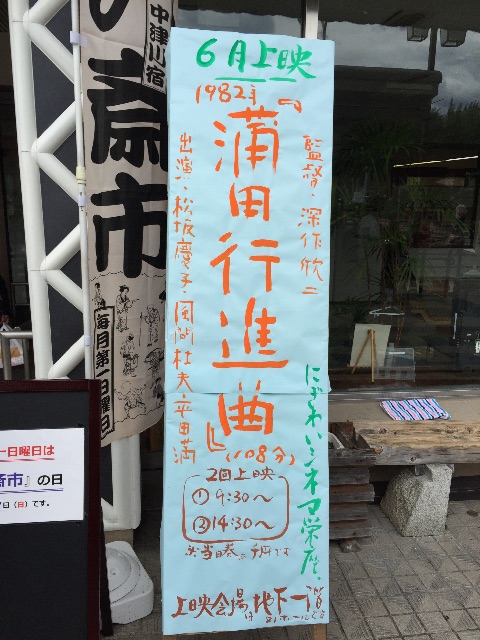 6月上映
1982年
「蒲田行進曲」
(108分)
監督・深作欣二
出演・松坂慶子・風間杜夫・平田満
にぎわいシネマ栄座
2回上映
①9:30～
②14:30～
※当日券
上映会場は地下一階
中津川宿
の斎市
毎月第一日曜日
一日曜日は
斎市』の日
日(日)です。